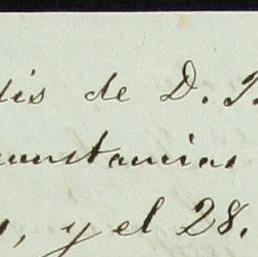 dis de D.
cunstancias
, y el 28.